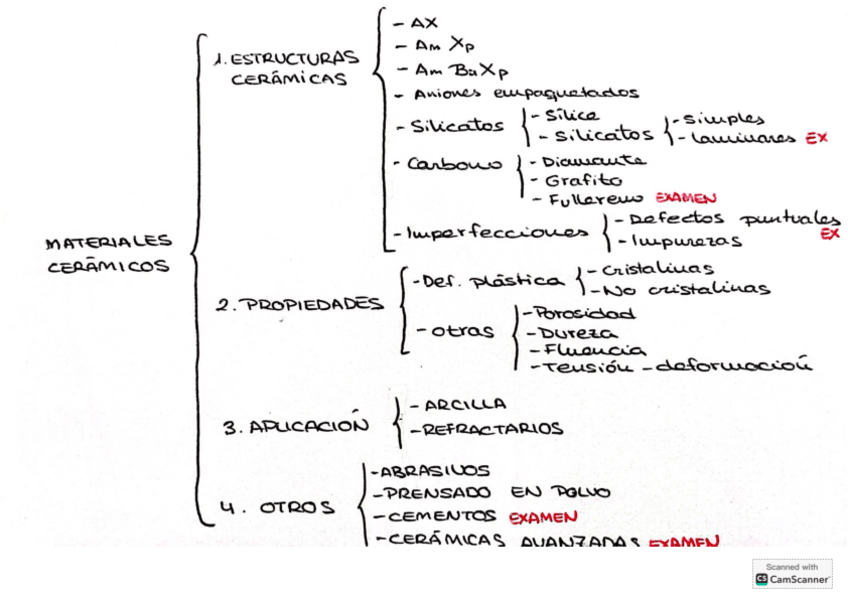 MATERIALES
CERÁMICOS
1. ESTRUCTURAS
CERÁMICAS
- AX
- Am Xp
- Am Bn Xp
- Aniones empaquetados
- Silicatos
- Sílice
- Silicatos
- Simples
- laminares EX
- Carbono
- Diamante
- Grafito
- Fullereno EXAMEN
- Imperfecciones
- Defectos puntuales
EX
- Impurezas
2. PROPIEDADES
- Def. plástica
- Cristalinas
- No cristalinas
- otras
- Porosidad
- Dureza
- Fluencia
- Tensión - deformación
3. APLICACIÓN
- ARCILLA
- REFRACTARIOS
4. OTROS
- ABRASIVOS
- PRENSADO EN POLVO
- CEMENTOS EXAMEN
- CERÁMICAS AVANZADAS EXAMEN
Scanned with
CS CamScanner